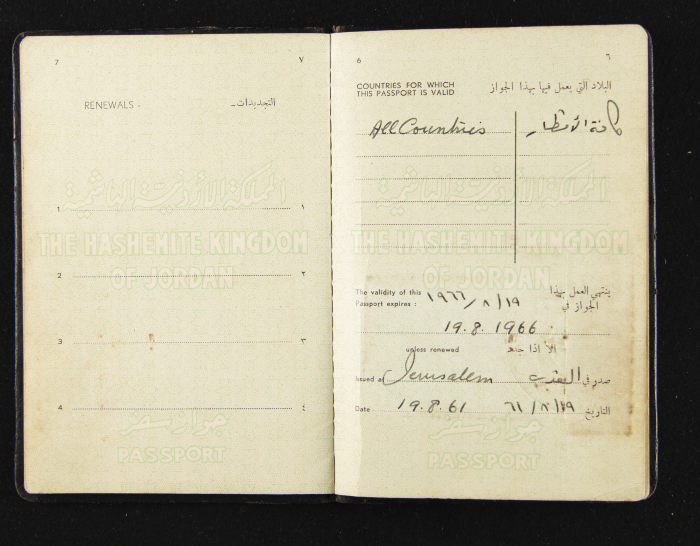 7 ٧
RENEWALS . التجديدات ـ
المملكة الأردنية الهاشمية
THE HASHEMITE KINGDOM
OF JORDAN
1 ١
2 ٢
3 ٣
4 ٤
جواز سفر
PASSPORT
6 ٦
COUNTRIES FOR WHICH البلاد التي يعمل فيها بهذا الجواز
THIS PASSPORT IS VALID
All Countries كافة الأقطار
المملكة الأردنية الهاشمية
THE HASHEMITE KINGDOM
OF JORDAN
The validity of this ١٩٦٦/٨/١٩ ينتهي العمل بهذا
Passport expires : الجواز في
19.8.1966
unless renewed الا اذا جدد
Issued at Jerusalem صدر في القدس
Date 19.8.61 ٦١/٨/١٩ التاريخ
جواز سفر
PASSPORT